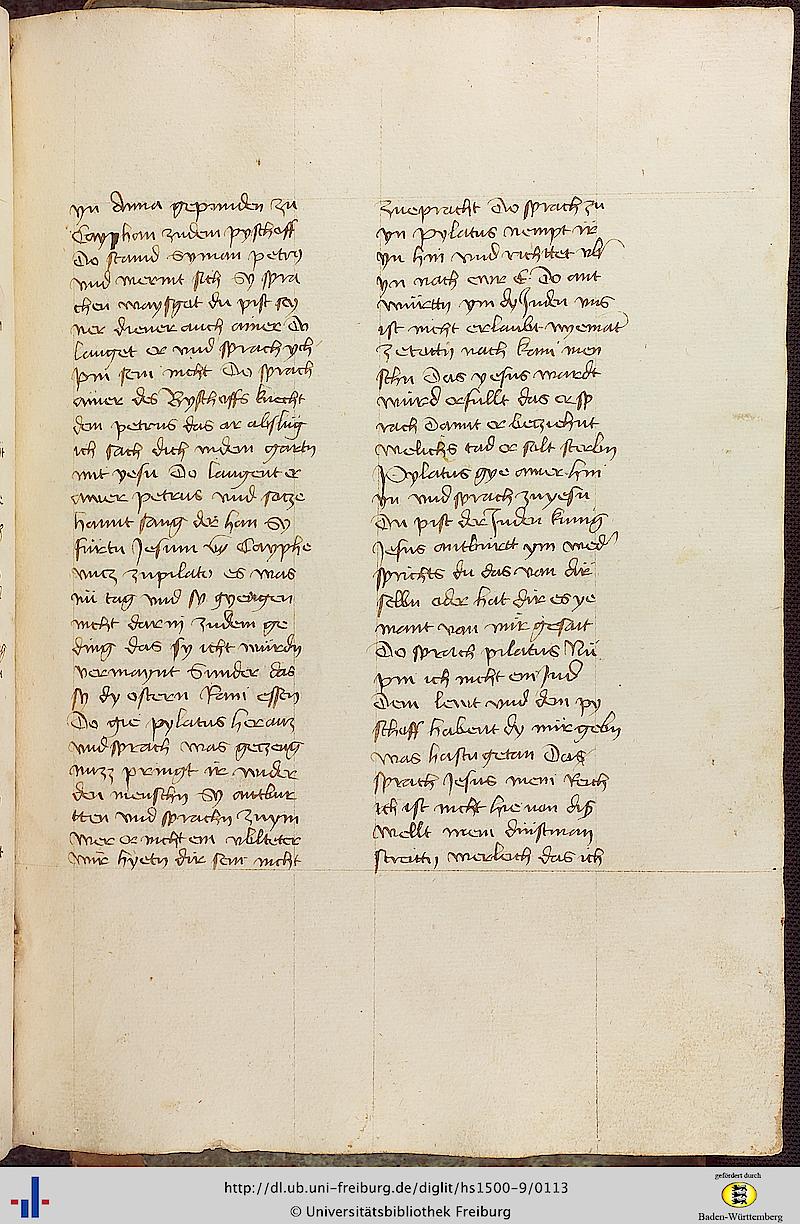 yn Anna gepunden zu
Cayphan zudem pyschoff
Do stand Syman petrꝰ
und wermt sich Sy spra
chen waysgat du pist sey
ner diener auch ainer Do
lauget er und sprach ych
pin sein nicht Do sprach
ainer des Byschoffs knecht
dem petrus das ar abslug
ich sach dich indem gartn
mit yesu Do laugent er
awer petrus und satze
hannt sang der han Sy
fürtn Jesum vo Cayphe
uncz zupilato es was
nü tag und sy gyengen
nicht darin zudem ge
ding das sy icht würdn
vermaynt Sunder das
sy dy ostern kam essen
Do gie pylatus herauz
undsprach was geczeug
nuzz pringt ir wider
den menschn Sy antbur
tten und sprachn zuym
wer er nicht ein ubltëter
wir hyetn dir sein nicht
zuepracht Do sprach zu
yn pylatus nempt ir
yn hin und richttet ub͛
yn nach ewr E Do ant
württn ym dy Juden uns
ist nicht erlaubt nyemat
zetottn nach kain men
schn Das yesus wardt
würd erfullt das er sp
rach Damit er beczichnt
welichs tad er solt sterbn
Pylatus gye awer hin
yn und sprach zu yesu
Du pist der Juden kunig
Jesus antburtt ym wed͛
sprichts du das von dir
selbn oder hat dir es ye
mant von mir gesait
Do sprach pilatus Nü
pin ich nicht ein Jud
Dein lewt und dein py
schoff habent dy mir gebn
was hastu getan Das
sprach Jesus mein Reich
ich ist nicht hie von dis
wellt mein dinstman
streittn werleich das ich
http://dl.ub.uni-freiburg.de/diglit/hs1500-9/0113
© Universitätsbibliothek Freiburg
gefördert durch
Baden-Württemberg